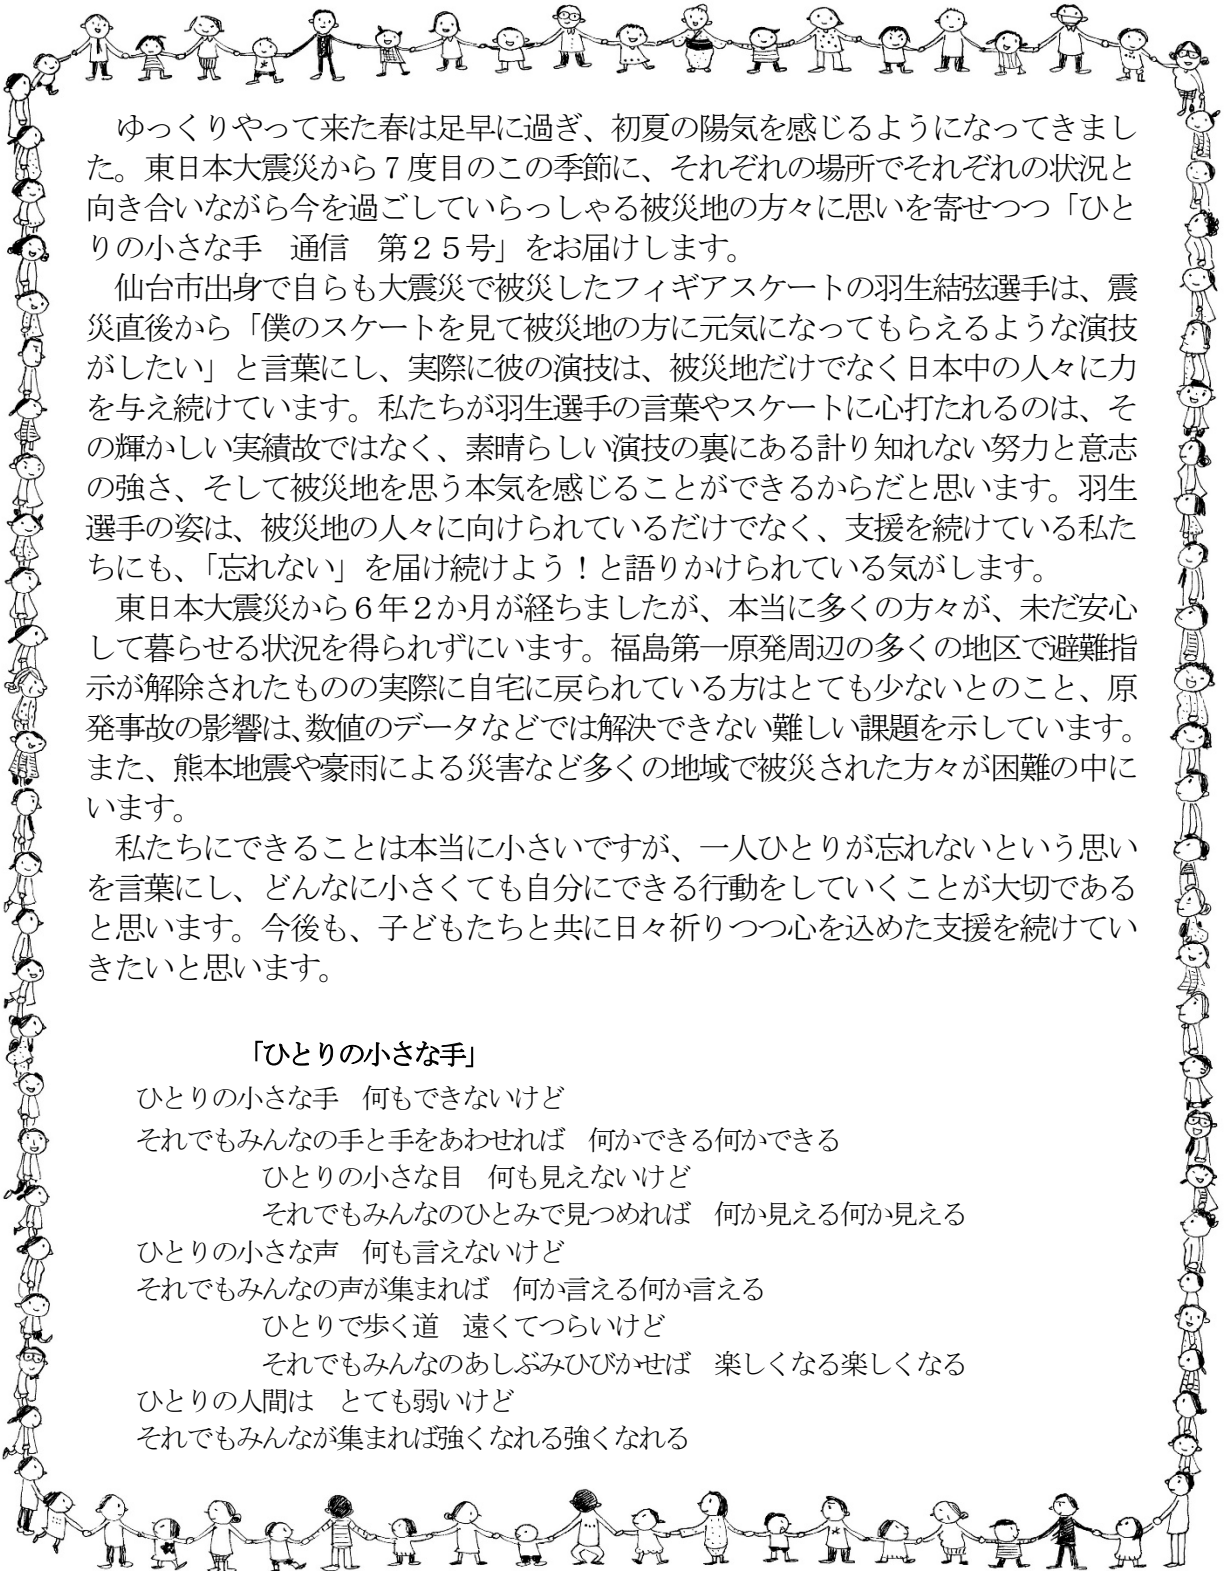 ゆっくりやって来た春は足早に過ぎ、初夏の陽気を感じるようになってきまし
た。東日本大震災から７度目のこの季節に、それぞれの場所でそれぞれの状況と
向き合いながら今を過ごしていらっしゃる被災地の方々に思いを寄せつつ「ひと
りの小さな手　通信　第２５号」をお届けします。
　仙台市出身で自らも大震災で被災したフィギアスケートの羽生結弦選手は、震
災直後から「僕のスケートを見て被災地の方に元気になってもらえるような演技
がしたい」と言葉にし、実際に彼の演技は、被災地だけでなく日本中の人々に力
を与え続けています。私たちが羽生選手の言葉やスケートに心打たれるのは、そ
の輝かしい実績故ではなく、素晴らしい演技の裏にある計り知れない努力と意志
の強さ、そして被災地を思う本気を感じることができるからだと思います。羽生
選手の姿は、被災地の人々に向けられているだけでなく、支援を続けている私た
ちにも、「忘れない」を届け続けよう！と語りかけられている気がします。
　東日本大震災から６年２か月が経ちましたが、本当に多くの方々が、未だ安心
して暮らせる状況を得られずにいます。福島第一原発周辺の多くの地区で避難指
示が解除されたものの実際に自宅に戻られている方はとても少ないとのこと、原
発事故の影響は、数値のデータなどでは解決できない難しい課題を示しています。
また、熊本地震や豪雨による災害など多くの地域で被災された方々が困難の中に
います。
　私たちにできることは本当に小さいですが、一人ひとりが忘れないという思い
を言葉にし、どんなに小さくても自分にできる行動をしていくことが大切である
と思います。今後も、子どもたちと共に日々祈りつつ心を込めた支援を続けてい
きたいと思います。
「ひとりの小さな手」
ひとりの小さな手　何もできないけど
それでもみんなの手と手をあわせれば　何かできる何かできる
ひとりの小さな目　何も見えないけど
それでもみんなのひとみで見つめれば　何か見える何か見える
ひとりの小さな声　何も言えないけど
それでもみんなの声が集まれば　何か言える何か言える
ひとりで歩く道　遠くてつらいけど
それでもみんなのあしぶみひびかせば　楽しくなる楽しくなる
ひとりの人間は　とても弱いけど
それでもみんなが集まれば強くなれる強くなれる